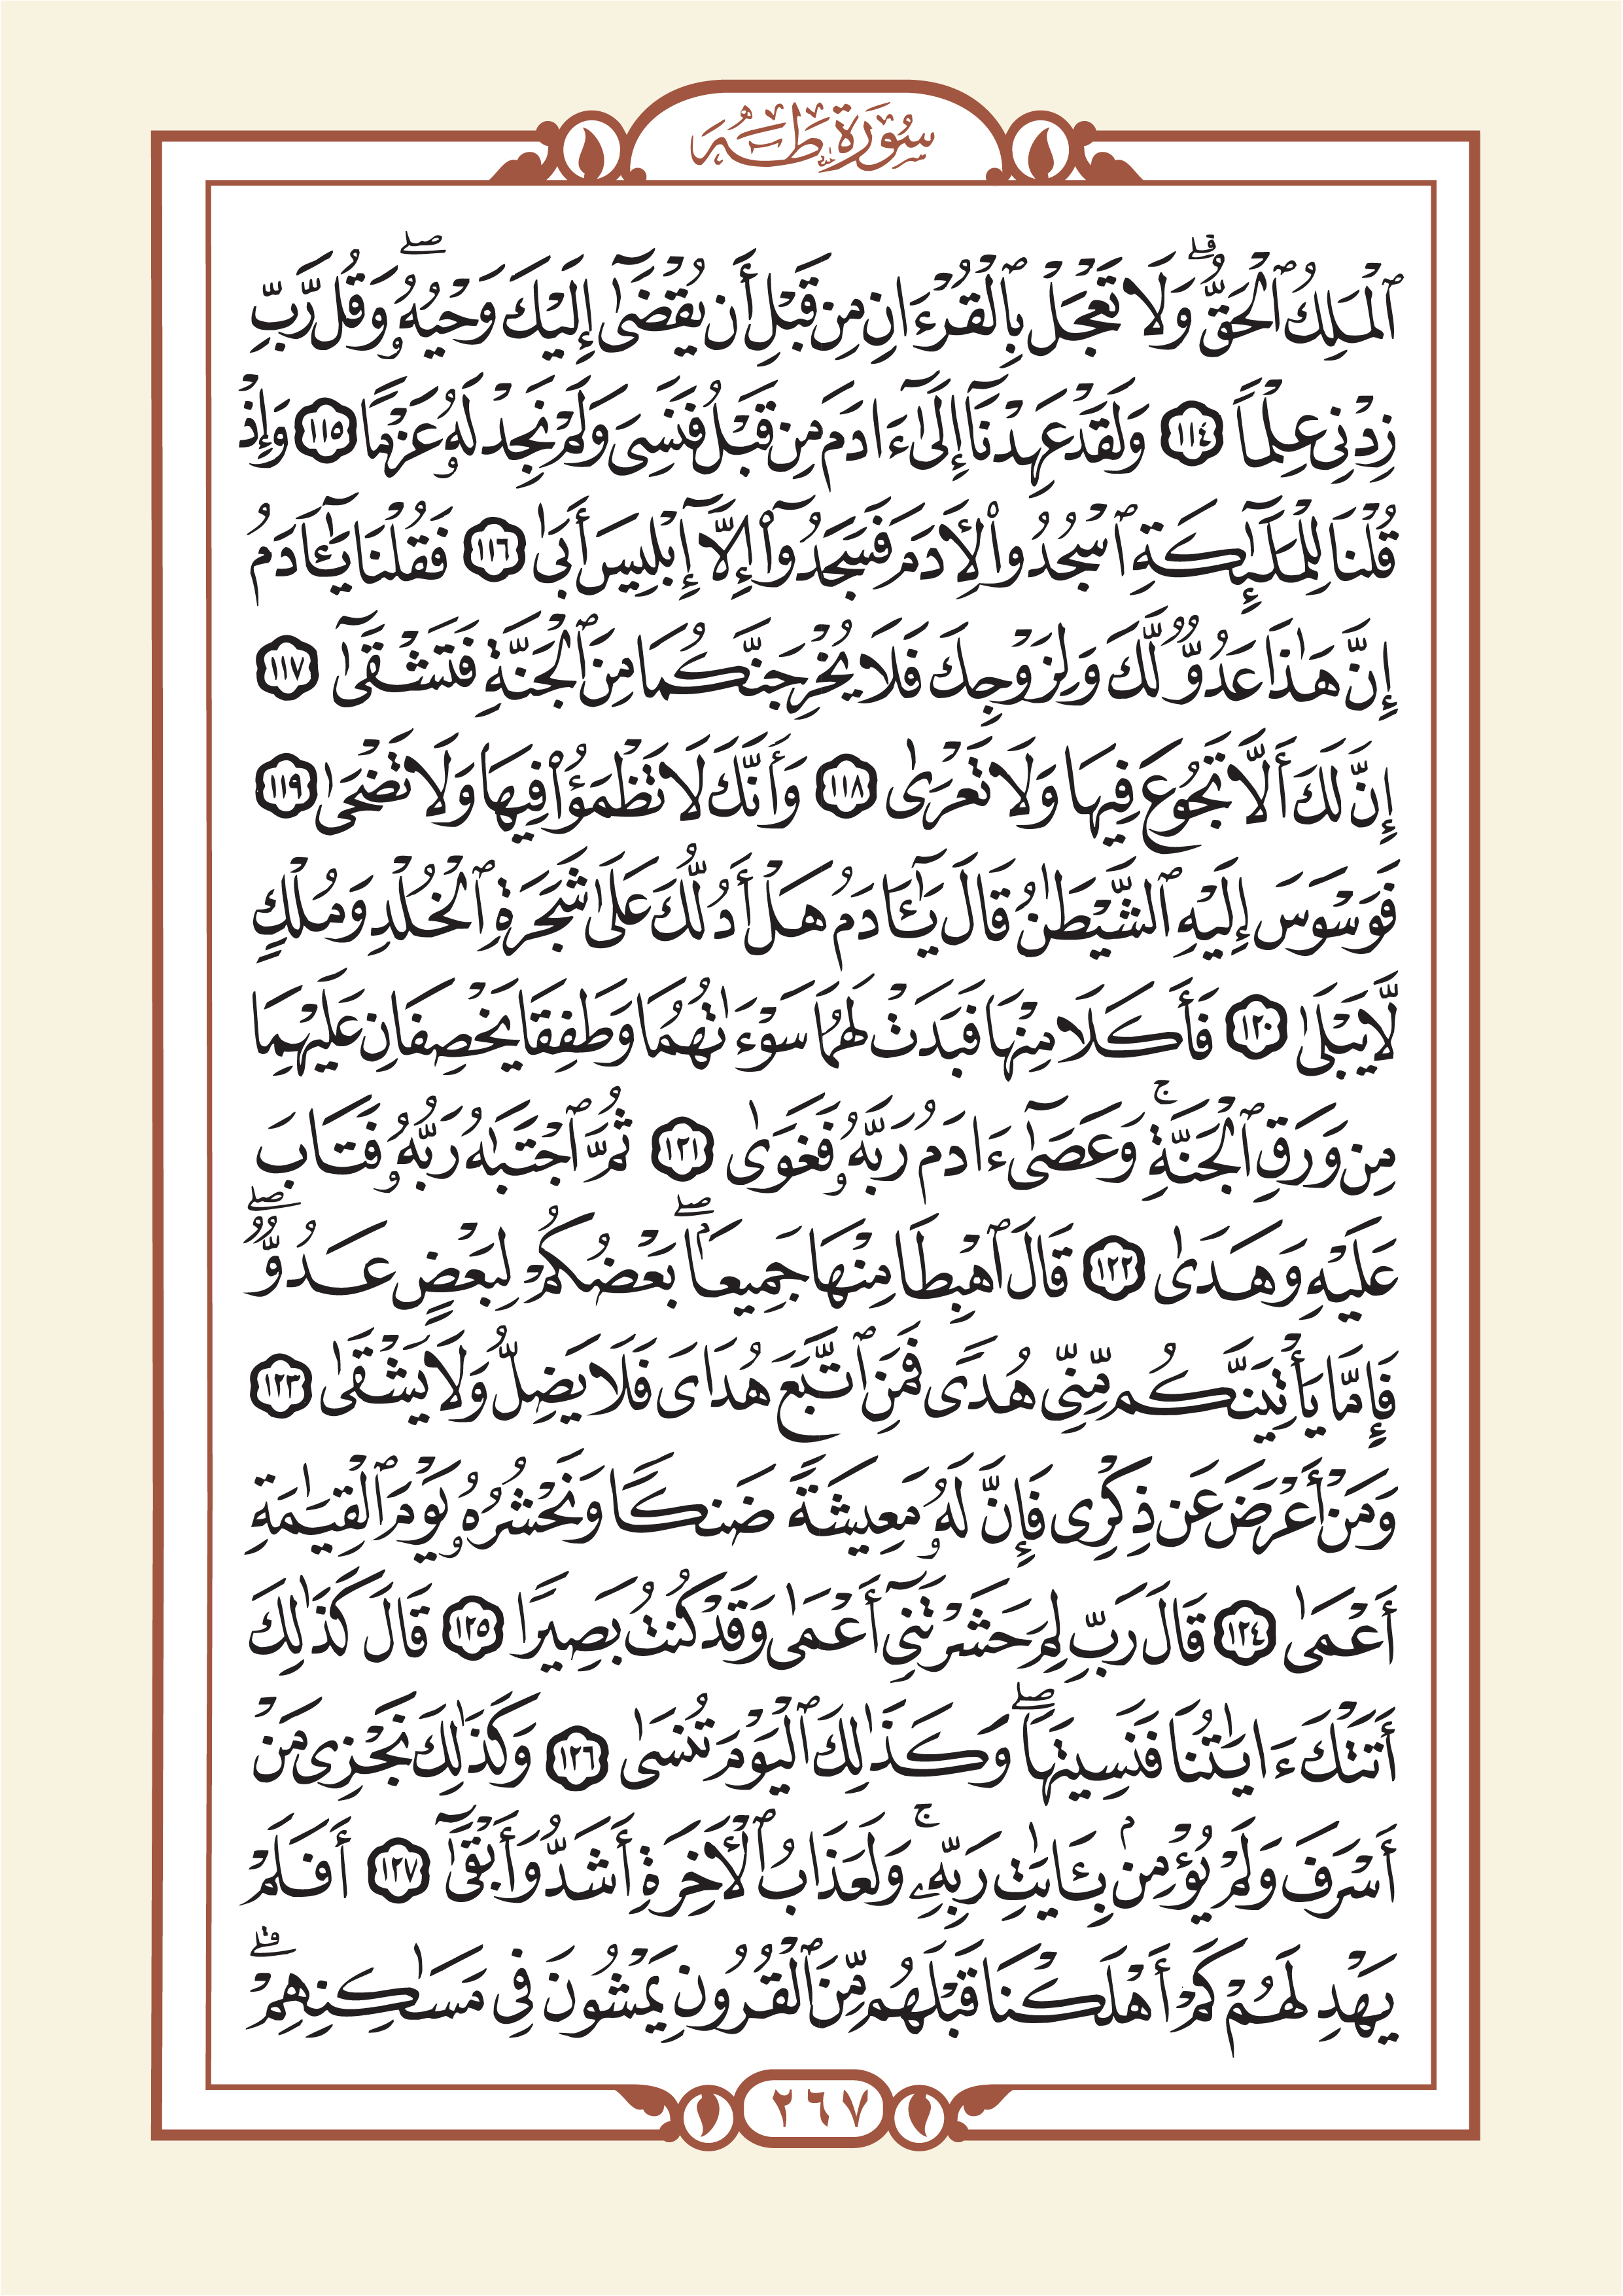 سُورَةُ طه
ٱلْمَلِكُ ٱلْحَقُّ ۗ وَلَا تَعْجَلْ بِٱلْقُرْءَانِ مِن قَبْلِ أَن يُقْضَىٰٓ إِلَيْكَ وَحْيُهُۥ ۖ وَقُل رَّبِّ
زِدْنِى عِلْمًا ١١٤ وَلَقَدْ عَهِدْنَآ إِلَىٰٓ ءَادَمَ مِن قَبْلُ فَنَسِىَ وَلَمْ نَجِدْ لَهُۥ عَزْمًا ١١٥ وَإِذْ
قُلْنَا لِلْمَلَـٰٓئِكَةِ ٱسْجُدُوا۟ لِـَٔادَمَ فَسَجَدُوٓا۟ إِلَّآ إِبْلِيسَ أَبَىٰ ١١٦ فَقُلْنَا يَـٰٓـَٔادَمُ
إِنَّ هَـٰذَا عَدُوٌّ لَّكَ وَلِزَوْجِكَ فَلَا يُخْرِجَنَّكُمَا مِنَ ٱلْجَنَّةِ فَتَشْقَىٰٓ ١١٧
إِنَّ لَكَ أَلَّا تَجُوعَ فِيهَا وَلَا تَعْرَىٰ ١١٨ وَأَنَّكَ لَا تَظْمَؤُا۟ فِيهَا وَلَا تَضْحَىٰ ١١٩
فَوَسْوَسَ إِلَيْهِ ٱلشَّيْطَـٰنُ قَالَ يَـٰٓـَٔادَمُ هَلْ أَدُلُّكَ عَلَىٰ شَجَرَةِ ٱلْخُلْدِ وَمُلْكٍ
لَّا يَبْلَىٰ ١٢٠ فَأَكَلَا مِنْهَا فَبَدَتْ لَهُمَا سَوْءَٰتُهُمَا وَطَفِقَا يَخْصِفَانِ عَلَيْهِمَا
مِن وَرَقِ ٱلْجَنَّةِ ۚ وَعَصَىٰٓ ءَادَمُ رَبَّهُۥ فَغَوَىٰ ١٢١ ثُمَّ ٱجْتَبَـٰهُ رَبُّهُۥ فَتَابَ
عَلَيْهِ وَهَدَىٰ ١٢٢ قَالَ ٱهْبِطَا مِنْهَا جَمِيعًۢا ۖ بَعْضُكُمْ لِبَعْضٍ عَدُوٌّ ۖ
فَإِمَّا يَأْتِيَنَّكُم مِّنِّى هُدًى فَمَنِ ٱتَّبَعَ هُدَاىَ فَلَا يَضِلُّ وَلَا يَشْقَىٰ ١٢٣
وَمَنْ أَعْرَضَ عَن ذِكْرِى فَإِنَّ لَهُۥ مَعِيشَةً ضَنكًا وَنَحْشُرُهُۥ يَوْمَ ٱلْقِيَـٰمَةِ
أَعْمَىٰ ١٢٤ قَالَ رَبِّ لِمَ حَشَرْتَنِىٓ أَعْمَىٰ وَقَدْ كُنتُ بَصِيرًا ١٢٥ قَالَ كَذَٰلِكَ
أَتَتْكَ ءَايَـٰتُنَا فَنَسِيتَهَا ۖ وَكَذَٰلِكَ ٱلْيَوْمَ تُنسَىٰ ١٢٦ وَكَذَٰلِكَ نَجْزِى مَنْ
أَسْرَفَ وَلَمْ يُؤْمِنۢ بِـَٔايَـٰتِ رَبِّهِۦ ۚ وَلَعَذَابُ ٱلْـَٔاخِرَةِ أَشَدُّ وَأَبْقَىٰٓ ١٢٧ أَفَلَمْ
يَهْدِ لَهُمْ كَمْ أَهْلَكْنَا قَبْلَهُم مِّنَ ٱلْقُرُونِ يَمْشُونَ فِى مَسَـٰكِنِهِمْ ۗ
٢٦٧